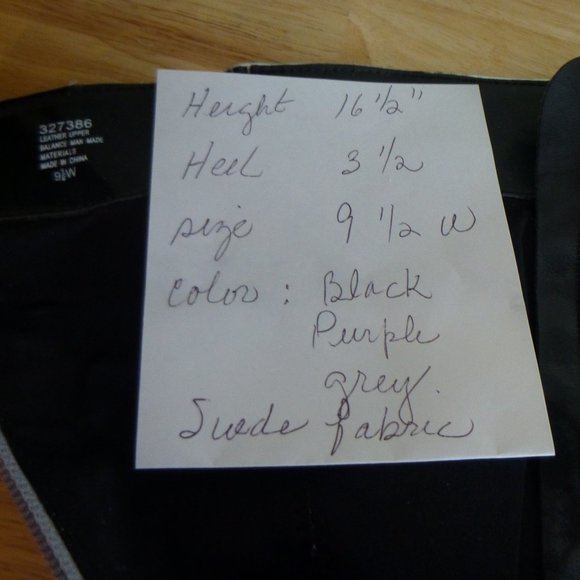 327386
LEATHER UPPER
BALANCE MAN MADE
MATERIALS
MADE IN CHINA
9½W
Height 16 1/2"
Heel 3 1/2
size 9 1/2 W
color : Black
Purple
grey.
Suede fabric